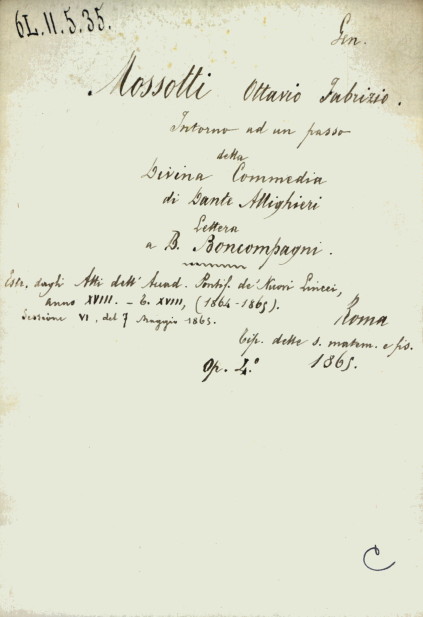 6L.11.5.35.
Gen.
Mossotti Ottavio Fabrizio.
Intorno ad un passo
della
Divina Commedia
di Dante Allighieri
Lettera
a B. Boncompagni.
Estr. dagli Atti dell'Accad. Pontif. de' Nuovi Lincei,
anno XVIII. - t. XVIII, (1864-1865).
Sessione VI, del 7 Maggio 1865.
Roma
tip. delle s. matem. e fis.
1865.
Op. 4.º
C